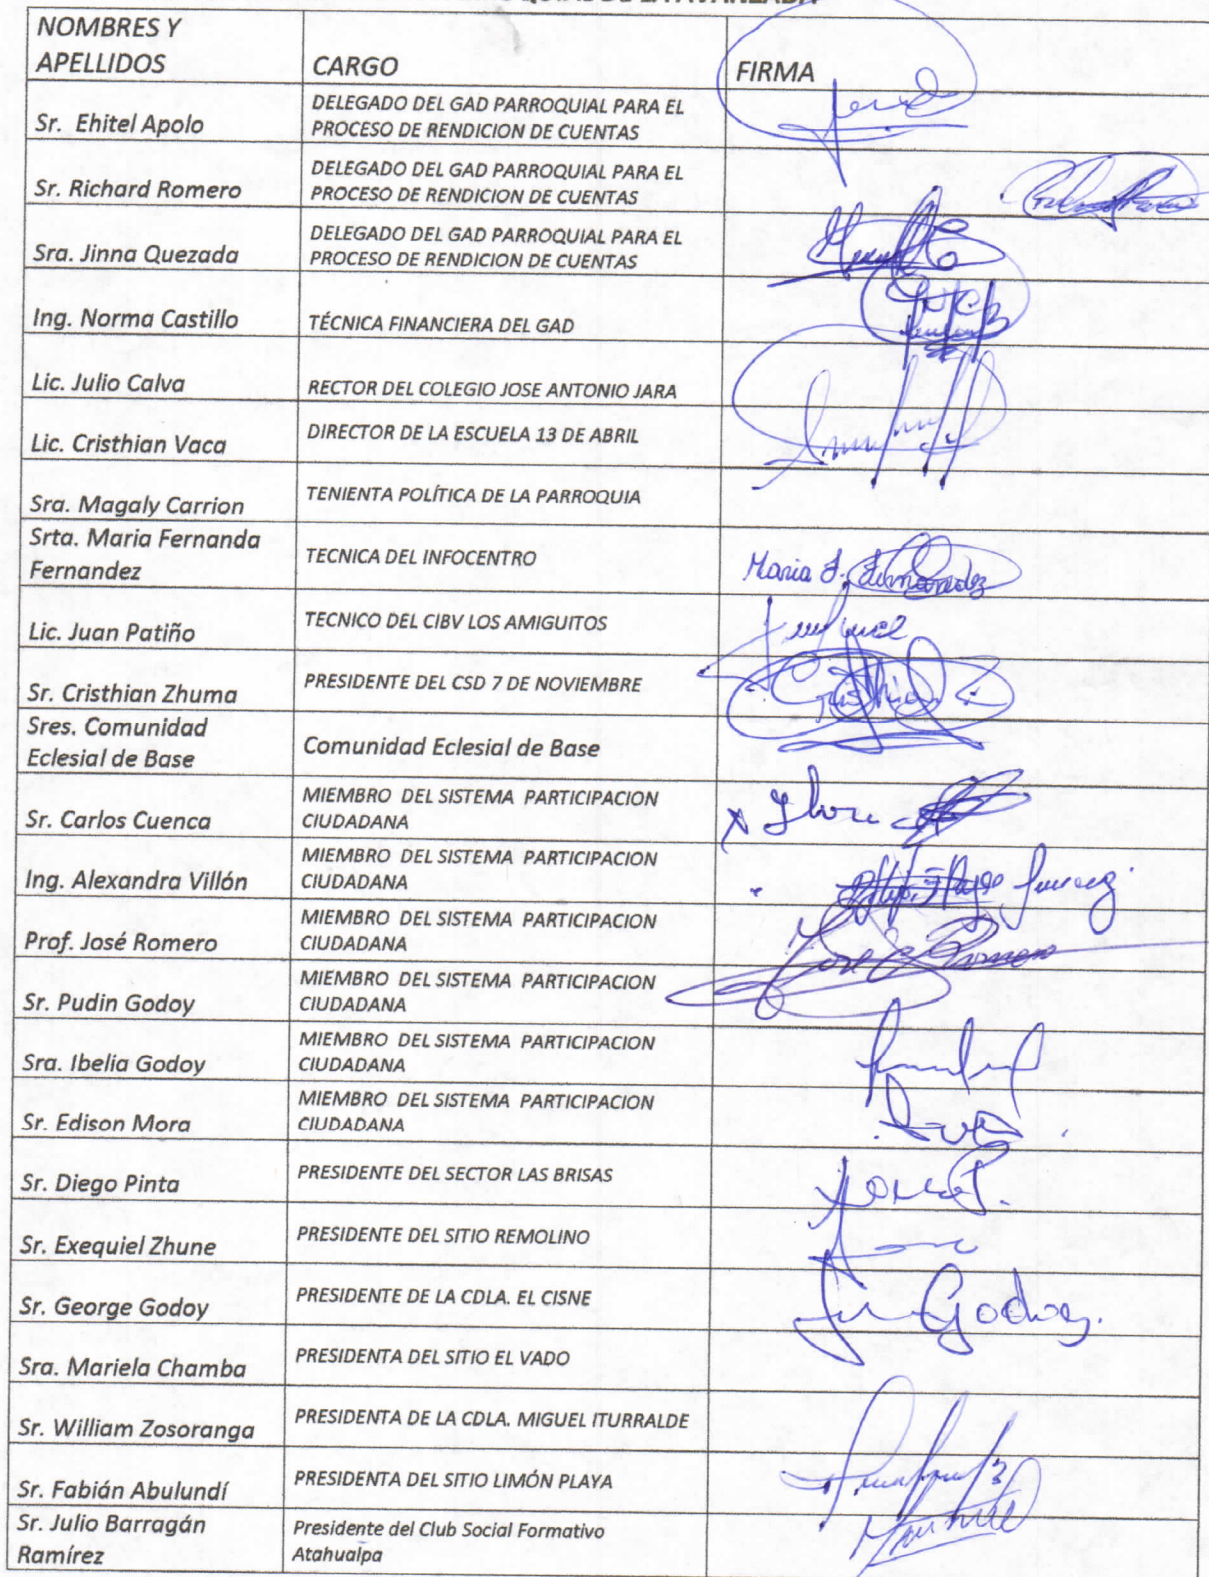 NOMBRES Y
APELLIDOS
CARGO
FIRMA
Sr. Ehitel Apolo
DELEGADO DEL GAD PARROQUIAL PARA EL
PROCESO DE RENDICION DE CUENTAS
Sr. Richard Romero
DELEGADO DEL GAD PARROQUIAL PARA EL
PROCESO DE RENDICION DE CUENTAS
Sra. Jinna Quezada
DELEGADO DEL GAD PARROQUIAL PARA EL
PROCESO DE RENDICION DE CUENTAS
Ing. Norma Castillo
TÉCNICA FINANCIERA DEL GAD
Lic. Julio Calva
RECTOR DEL COLEGIO JOSE ANTONIO JARA
Lic. Cristhian Vaca
DIRECTOR DE LA ESCUELA 13 DE ABRIL
Sra. Magaly Carrion
TENIENTA POLÍTICA DE LA PARROQUIA
Srta. Maria Fernanda
Fernandez
TECNICA DEL INFOCENTRO
Maria F. Fernandez
Lic. Juan Patiño
TECNICO DEL CIBV LOS AMIGUITOS
Sr. Cristhian Zhuma
PRESIDENTE DEL CSD 7 DE NOVIEMBRE
Cristhian Z
Sres. Comunidad
Eclesial de Base
Comunidad Eclesial de Base
Sr. Carlos Cuenca
MIEMBRO DEL SISTEMA PARTICIPACION
CIUDADANA
Ing. Alexandra Villón
MIEMBRO DEL SISTEMA PARTICIPACION
CIUDADANA
Prof. José Romero
MIEMBRO DEL SISTEMA PARTICIPACION
CIUDADANA
Jose Romero
Sr. Pudin Godoy
MIEMBRO DEL SISTEMA PARTICIPACION
CIUDADANA
Sra. Ibelia Godoy
MIEMBRO DEL SISTEMA PARTICIPACION
CIUDADANA
Sr. Edison Mora
MIEMBRO DEL SISTEMA PARTICIPACION
CIUDADANA
Sr. Diego Pinta
PRESIDENTE DEL SECTOR LAS BRISAS
Sr. Exequiel Zhune
PRESIDENTE DEL SITIO REMOLINO
Sr. George Godoy
PRESIDENTE DE LA CDLA. EL CISNE
Godoy.
Sra. Mariela Chamba
PRESIDENTA DEL SITIO EL VADO
Sr. William Zosoranga
PRESIDENTA DE LA CDLA. MIGUEL ITURRALDE
Sr. Fabián Abulundí
PRESIDENTA DEL SITIO LIMÓN PLAYA
Sr. Julio Barragán
Ramírez
Presidente del Club Social Formativo
Atahualpa